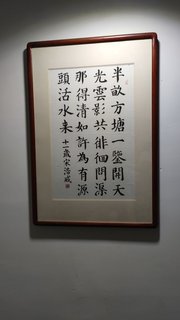 半畝方塘一鑒開天
光雲影共徘徊問渠
那得清如許為有源
頭活水来
十一歲宋浩成